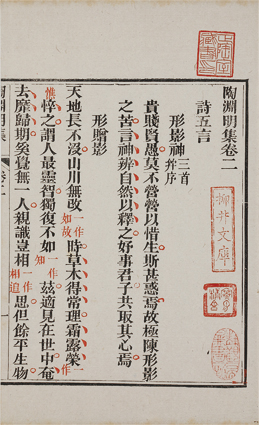 陶淵明集卷二
詩五言
形影神三首并序
貴賤賢愚莫不營營以惜生斯甚惑焉故極陳形影
之苦言神辨自然以釋之好事君子共取其心焉
形贈影
天地長不沒山川無改一作如故時草木得常理霜露榮一作
憔悴之謂人最靈智獨復不如一作知茲適見在世中奄
去靡歸期奚覺無一人親識豈相一作相追思但餘平生物
柳井文庫